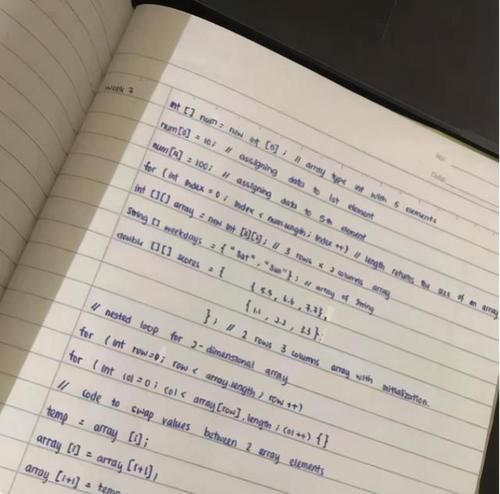 week 7
No:
Date:
int [] num = new int [5]; // array type int with 5 elements
num[0] = 10; // assigning data to 1st element
num[4] = 100; // assigning data to 5th element
for (int index = 0; index < num.length; index ++) // length returns the size of an array
int [][] array = new int [3][2]; // 3 rows x 2 columns array
String [] weekdays = { "Sat", "Sun"}; // array of String
double [][] scores = { { 5.5, 6.6, 7.7},
{ 1.1, 2.2, 3.3}
}; // 2 rows 3 columns array with initialization.
// nested loop for 2-dimensional array
for (int row=0; row < array.length; row ++)
for (int col = 0; col < array[row].length; col ++) {}
// code to swap values between 2 array elements
temp = array [i];
array [i] = array [i+1];
array [i+1] = temp